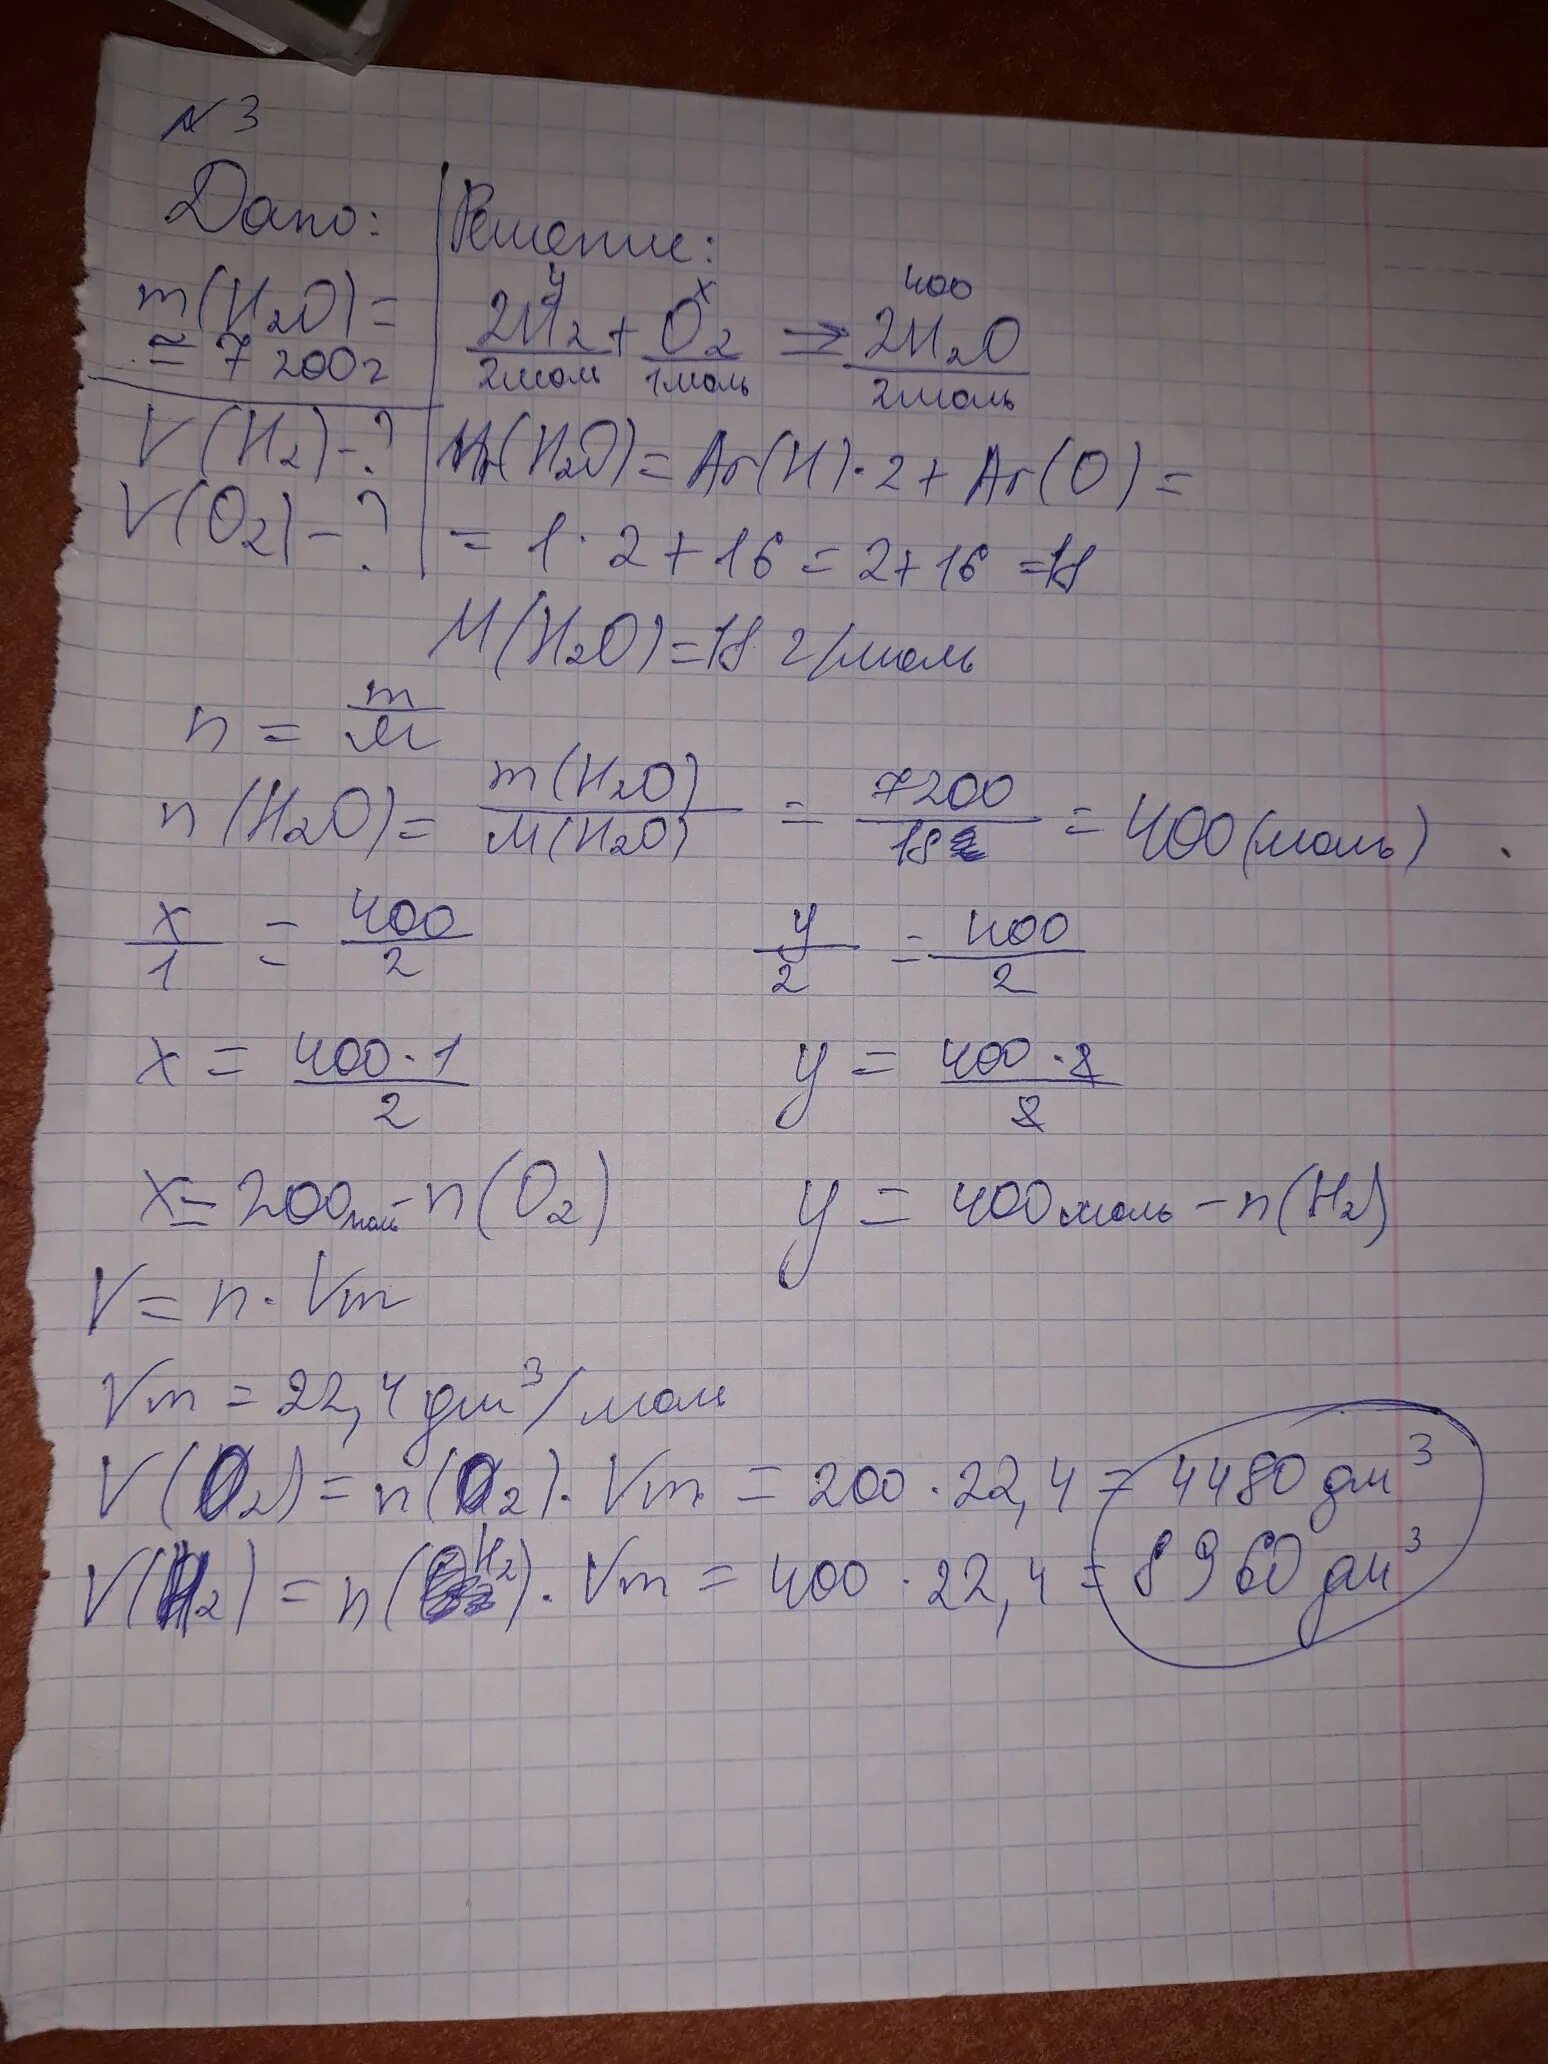 №3
Дано:
m(H₂O)=
= 7 200г
V(H₂)-?
V(O₂)-?
Решение:
y x 400
2H₂ + O₂ ⇒ 2H₂O
2моль 1моль 2моль
Mr(H₂O)=Ar(H)·2+Ar(O)=
= 1·2+16=2+16=18
M(H₂O)=18 г/моль
n = m/M
n(H₂O)= m(H₂O)/M(H₂O) = 7200/18 = 400(моль)
x/1 = 400/2 y/2 = 400/2
x = 400·1/2 y = 400·2/2
x=200моль-n(O₂) y = 400моль-n(H₂)
V=n·Vm
Vm=22,4дм³/моль
V(O₂)=n(O₂)·Vm=200·22,4=4480дм³
V(H₂)=n(H₂)·Vm=400·22,4=8960дм³